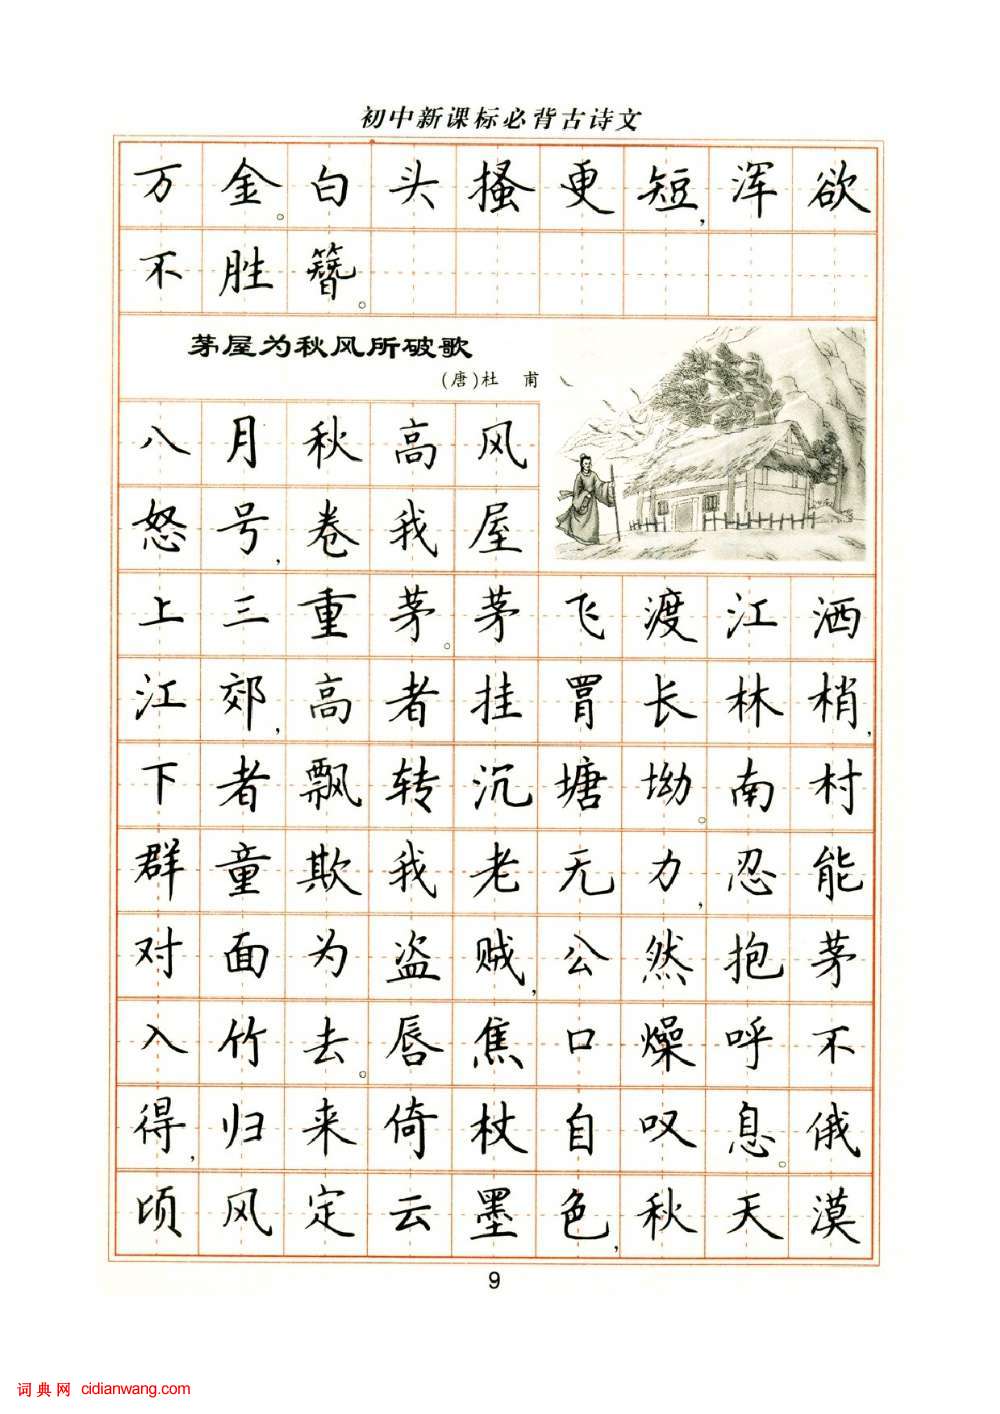 初中新课标必背古诗文
万金。白头搔更短,浑欲
不胜簪。
茅屋为秋风所破歌
(唐)杜 甫
八月秋高风
怒号,卷我屋
上三重茅。茅飞渡江洒
江郊,高者挂罥长林梢,
下者飘转沉塘坳。南村
群童欺我老无力,忍能
对面为盗贼,公然抱茅
入竹去。唇焦口燥呼不
得,归来倚杖自叹息。俄
顷风定云墨色,秋天漠
9
词典网 cidianwang.com